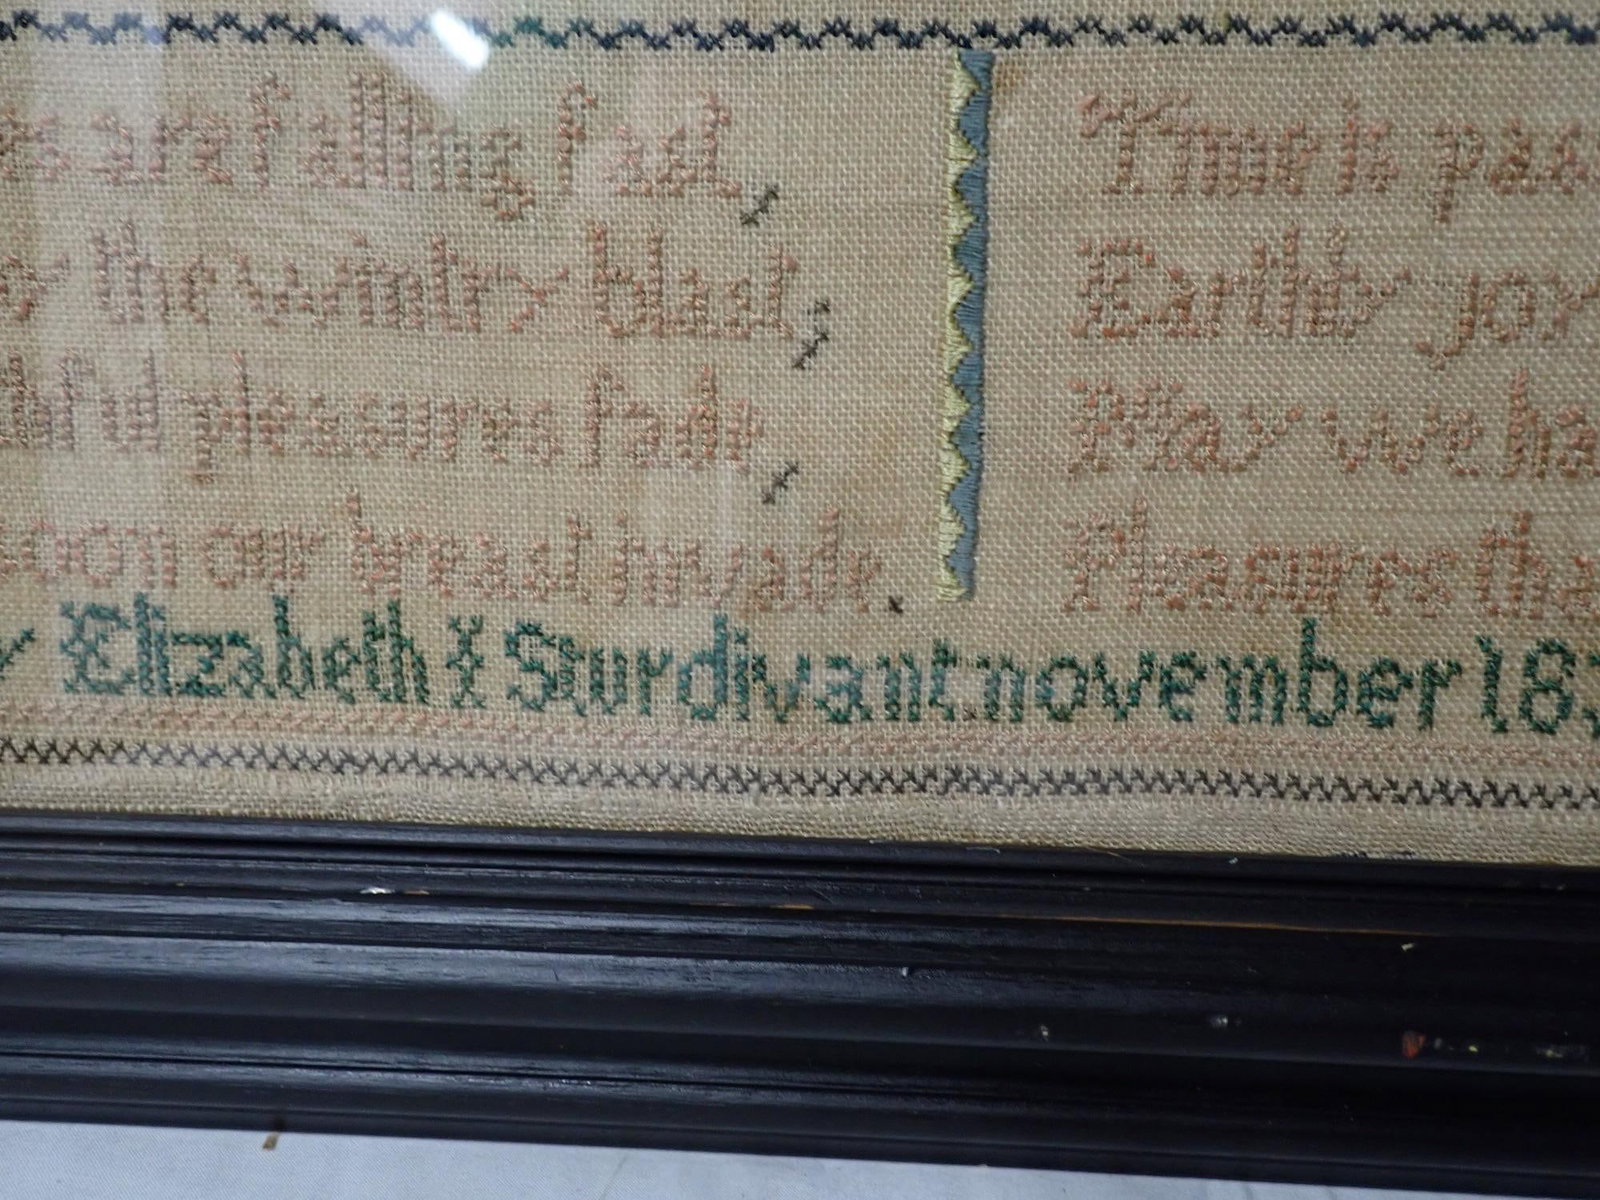 es are falling fast,
y the wintry blast;
thful pleasures fade,
soon our breast invade.
Time is pas
Earthly joy
May we ha
Pleasures tha
y Elizabeth I Sturdivant november 183